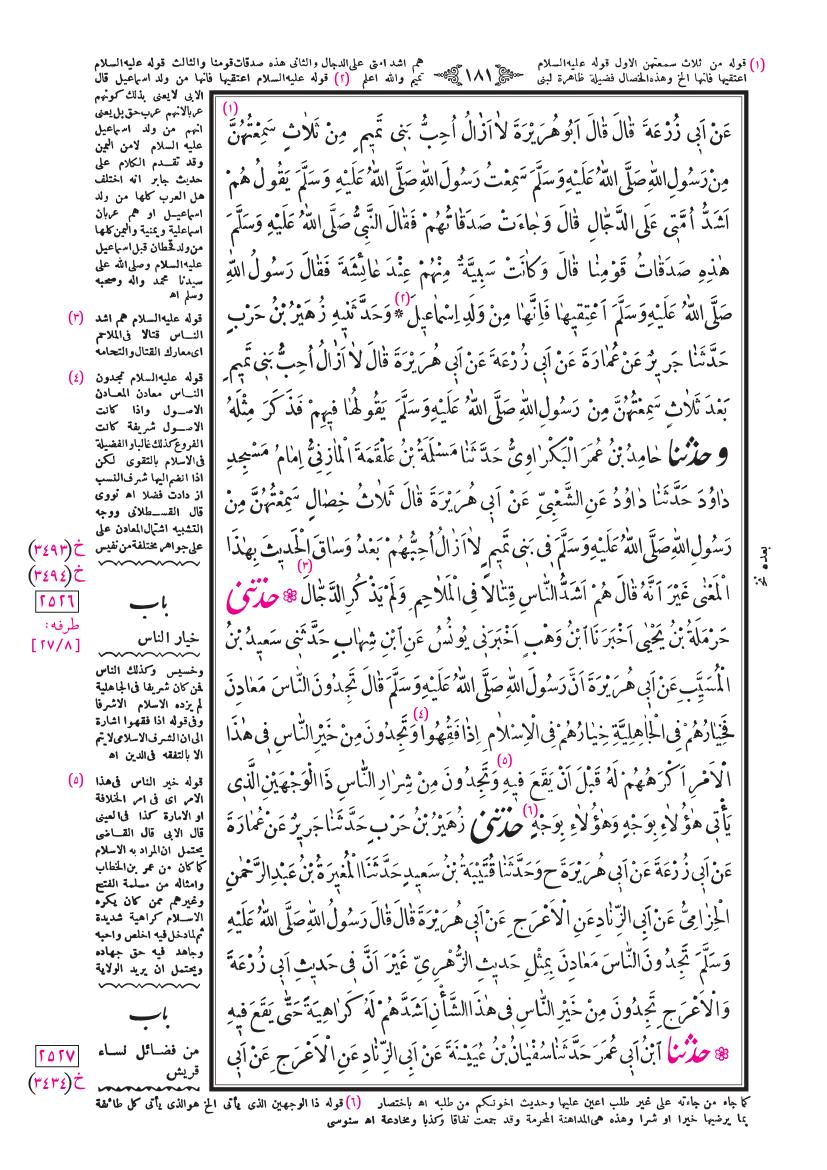 ﴿١٨١﴾
(١) قوله من ثلاث سمعتهن الاول قوله عليه السلام هم اشد امتى على الدجال والثانى هذه صدقات قومنا والثالث قوله عليه السلام
اعتقيها فانها الخ وهذه الخصال فضيلة ظاهرة لبنى تميم والله اعلم (٢) قوله عليه السلام اعتقيها فانها من ولد اسماعيل قال
الابى لا يعنى بذلك كونهم
عربا لانهم عرب حق بل يعنى
انهم من ولد اسماعيل
عليه السلام لا من اليمن
وقد تقدم الكلام على
حديث جابر انه اختلف
هل العرب كلها من ولد
اسماعيل او هم عربان
اسماعلية ويمنية واليمن كلها
من ولد قحطان قبل اسماعيل
عليه السلام وصلى الله على
سيدنا محمد واله وصحبه
وسلم اه
(٣) قوله عليه السلام هم اشد
الناس قتالا فى الملاحم
اى معارك القتال والتحامه
(٤) قوله عليه السلام تجدون
الناس معادن المعادن
الاصول واذا كانت
الاصول شريفة كانت
الفروع كذلك غالبا والفضيلة
فى الاسلام بالتقوى لكن
اذا انضم اليها شرف النسب
ازدادت فضلا اه نووى
قال القسطلانى ووجه
التشبيه اشتمال المعادن على
على جواهر مختلفة من نفيس
باب
خيار الناس
وخسيس وكذلك الناس
فمن كان شريفا فى الجاهلية
لم يزده الاسلام الا شرفا
وفى قوله اذا فقهوا اشارة
الى ان الشرف الاسلامى لا يتم
الا بالتفقه فى الدين اه
(٥) قوله خير الناس فى هذا
الامر اى فى امر الخلافة
او الامارة كذا فى العينى
قال الابى قال القاضى
يحتمل ان المراد به الاسلام
كما كان من عمر بن الخطاب
وامثاله من مسلمة الفتح
وغيرهم ممن كان يكره
الاسلام كراهية شديدة
ثم لما دخل فيه اخلص واحبه
وجاهد فيه حق جهاده
ويحتمل ان يريد الولاية
باب
من فضائل نساء
قريش
خ (٣٤٩٣)
خ (٣٤٩٤)
٢٥٢٦
طرفه:
[٢٧/٨]
٢٥٢٧
خ (٣٤٣٤)
عَنْ اَبِى زُرْعَةَ قَالَ قَالَ اَبُو هُرَيْرَةَ لَا اَزَالُ اُحِبُّ بَنِى تَمِيمٍ مِنْ ثَلَاثٍ سَمِعْتُهُنَّ (١)
مِنْ رَسُولِ اللهِ صَلَّى اللهُ عَلَيْهِ وَسَلَّمَ سَمِعْتُ رَسُولَ اللهِ صَلَّى اللهُ عَلَيْهِ وَسَلَّمَ يَقُولُ هُمْ
اَشَدُّ اُمَّتِى عَلَى الدَّجَّالِ قَالَ وَجَاءَتْ صَدَقَاتُهُمْ فَقَالَ النَّبِىُّ صَلَّى اللهُ عَلَيْهِ وَسَلَّمَ
هٰذِهِ صَدَقَاتُ قَوْمِنَا قَالَ وَكَانَتْ سَبِيَّةٌ مِنْهُمْ عِنْدَ عَائِشَةَ فَقَالَ رَسُولُ اللهِ
صَلَّى اللهُ عَلَيْهِ وَسَلَّمَ اَعْتِقِيهَا فَاِنَّهَا مِنْ وَلَدِ اِسْمَاعِيلَ (٢) * وَحَدَّثَنِيهِ زُهَيْرُ بْنُ حَرْبٍ
حَدَّثَنَا جَرِيرٌ عَنْ عُمَارَةَ عَنْ اَبِى زُرْعَةَ عَنْ اَبِى هُرَيْرَةَ قَالَ لَا اَزَالُ اُحِبُّ بَنِى تَمِيمٍ
بَعْدَ ثَلَاثٍ سَمِعْتُهُنَّ مِنْ رَسُولِ اللهِ صَلَّى اللهُ عَلَيْهِ وَسَلَّمَ يَقُولُهَا فِيهِمْ فَذَكَرَ مِثْلَهُ
وحدثنا حَامِدُ بْنُ عُمَرَ الْبَكْرَاوِىُّ حَدَّثَنَا مَسْلَمَةُ بْنُ عَلْقَمَةَ الْمَازِنِىُّ اِمَامُ مَسْجِدِ
دَاوُدَ حَدَّثَنَا دَاوُدُ عَنِ الشَّعْبِىِّ عَنْ اَبِى هُرَيْرَةَ قَالَ ثَلَاثُ خِصَالٍ سَمِعْتُهُنَّ مِنْ
رَسُولِ اللهِ صَلَّى اللهُ عَلَيْهِ وَسَلَّمَ فِى بَنِى تَمِيمٍ لَا اَزَالُ اُحِبُّهُمْ بَعْدُ وَسَاقَ الْحَدِيثَ بِهٰذَا
بعده نخ
الْمَعْنٰى غَيْرَ اَنَّهُ قَالَ هُمْ اَشَدُّ النَّاسِ قِتَالًا فِى الْمَلَاحِمِ (٣) وَلَمْ يَذْكُرِ الدَّجَّالَ ۞ حدثنى
حَرْمَلَةُ بْنُ يَحْيٰى اَخْبَرَنَا ابْنُ وَهْبٍ اَخْبَرَنِى يُونُسُ عَنِ ابْنِ شِهَابٍ حَدَّثَنِى سَعِيدُ بْنُ
الْمُسَيِّبِ عَنْ اَبِى هُرَيْرَةَ اَنَّ رَسُولَ اللهِ صَلَّى اللهُ عَلَيْهِ وَسَلَّمَ قَالَ تَجِدُونَ النَّاسَ مَعَادِنَ
فَخِيَارُهُمْ فِى الْجَاهِلِيَّةِ خِيَارُهُمْ فِى الْاِسْلَامِ اِذَا فَقِهُوا (٤) وَتَجِدُونَ مِنْ خَيْرِ النَّاسِ فِى هٰذَا
الْاَمْرِ اَكْرَهُهُمْ لَهُ قَبْلَ اَنْ يَقَعَ فِيهِ (٥) وَتَجِدُونَ مِنْ شِرَارِ النَّاسِ ذَا الْوَجْهَيْنِ الَّذِى
يَأْتِى هٰؤُلَاءِ بِوَجْهٍ وَهٰؤُلَاءِ بِوَجْهٍ (٦) حدثنى زُهَيْرُ بْنُ حَرْبٍ حَدَّثَنَا جَرِيرٌ عَنْ عُمَارَةَ
عَنْ اَبِى زُرْعَةَ عَنْ اَبِى هُرَيْرَةَ ح وَحَدَّثَنَا قُتَيْبَةُ بْنُ سَعِيدٍ حَدَّثَنَا الْمُغِيرَةُ بْنُ عَبْدِ الرَّحْمٰنِ
الْحِزَامِىُّ عَنْ اَبِى الزِّنَادِ عَنِ الْاَعْرَجِ عَنْ اَبِى هُرَيْرَةَ قَالَ قَالَ رَسُولُ اللهِ صَلَّى اللهُ عَلَيْهِ
وَسَلَّمَ تَجِدُونَ النَّاسَ مَعَادِنَ بِمِثْلِ حَدِيثِ الزُّهْرِىِّ غَيْرَ اَنَّ فِى حَدِيثِ اَبِى زُرْعَةَ
وَالْاَعْرَجِ تَجِدُونَ مِنْ خَيْرِ النَّاسِ فِى هٰذَا الشَّأْنِ اَشَدَّهُمْ لَهُ كَرَاهِيَةً حَتّٰى يَقَعَ فِيهِ
۞ حدثنا ابْنُ اَبِى عُمَرَ حَدَّثَنَا سُفْيَانُ بْنُ عُيَيْنَةَ عَنْ اَبِى الزِّنَادِ عَنِ الْاَعْرَجِ عَنْ اَبِى
كما جاء من جاءته على غير طلب اعين عليها وحديث اخونكم من طلبه اه باختصار (٦) قوله ذا الوجهين الذى يأتى الخ هو الذى يأتى كل طائفة
بما يرضيها خيرا او شرا وهذه هى المداهنة المحرمة وقد جمعت نفاقا وكذبا ومخادعة اه سنوسى